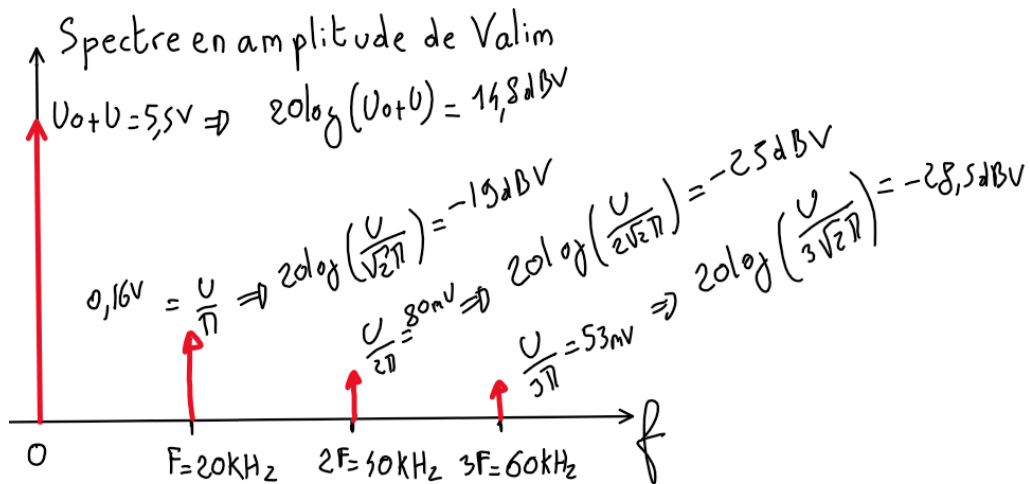 Spectre en amplitude de Valim
U0+U=5,5V ⇒ 20log(U0+U)=14,8dBV
0,16V = U/π ⇒ 20log(U/(√2π)) = -19dBV
U/2π = 80mV ⇒ 20log(U/(2√2π)) = -25dBV
U/3π = 53mV ⇒ 20log(U/(3√2π)) = -28,5dBV
0
F=20kHz
2F=40kHz
3F=60kHz
f